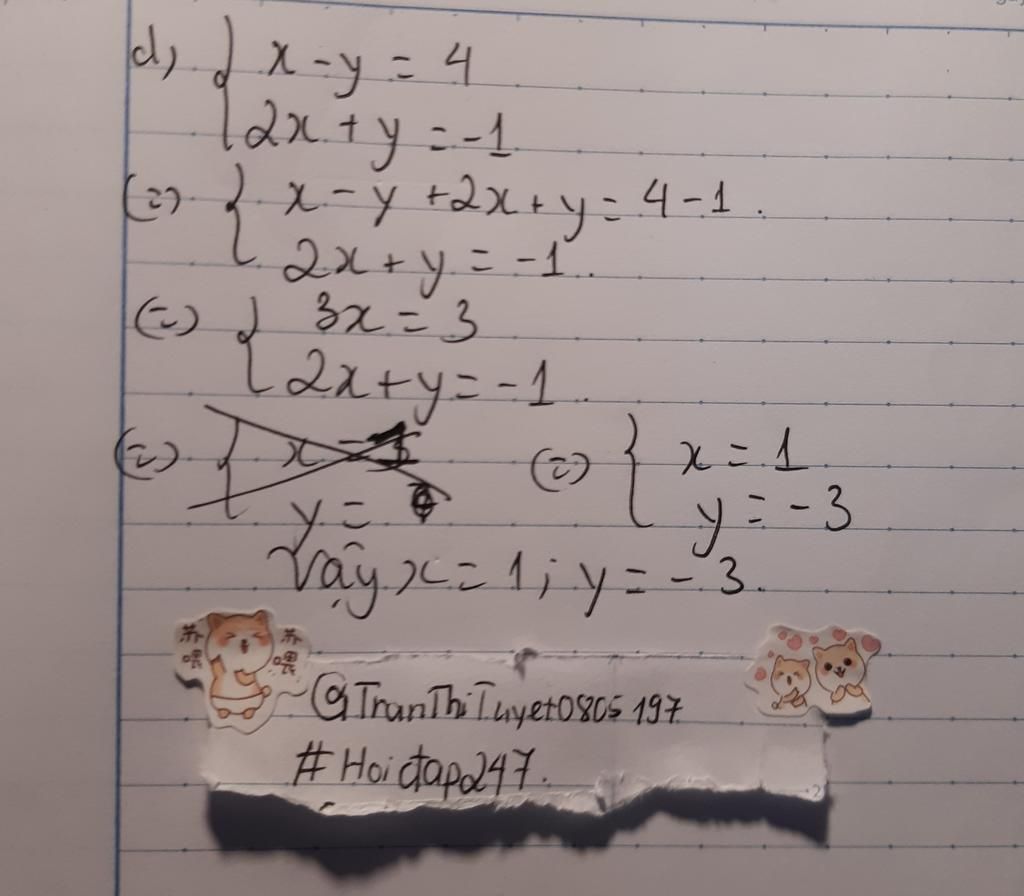 d) { x - y = 4
2x + y = -1
(=) { x - y + 2x + y = 4 - 1.
2x + y = -1.
(=) { 3x = 3
2x + y = -1.
(=) { x =
y =
(=) { x = 1
y = -3
Vậy x = 1; y = -3.
@TranThiTuyet0805197
#Hoidap247.